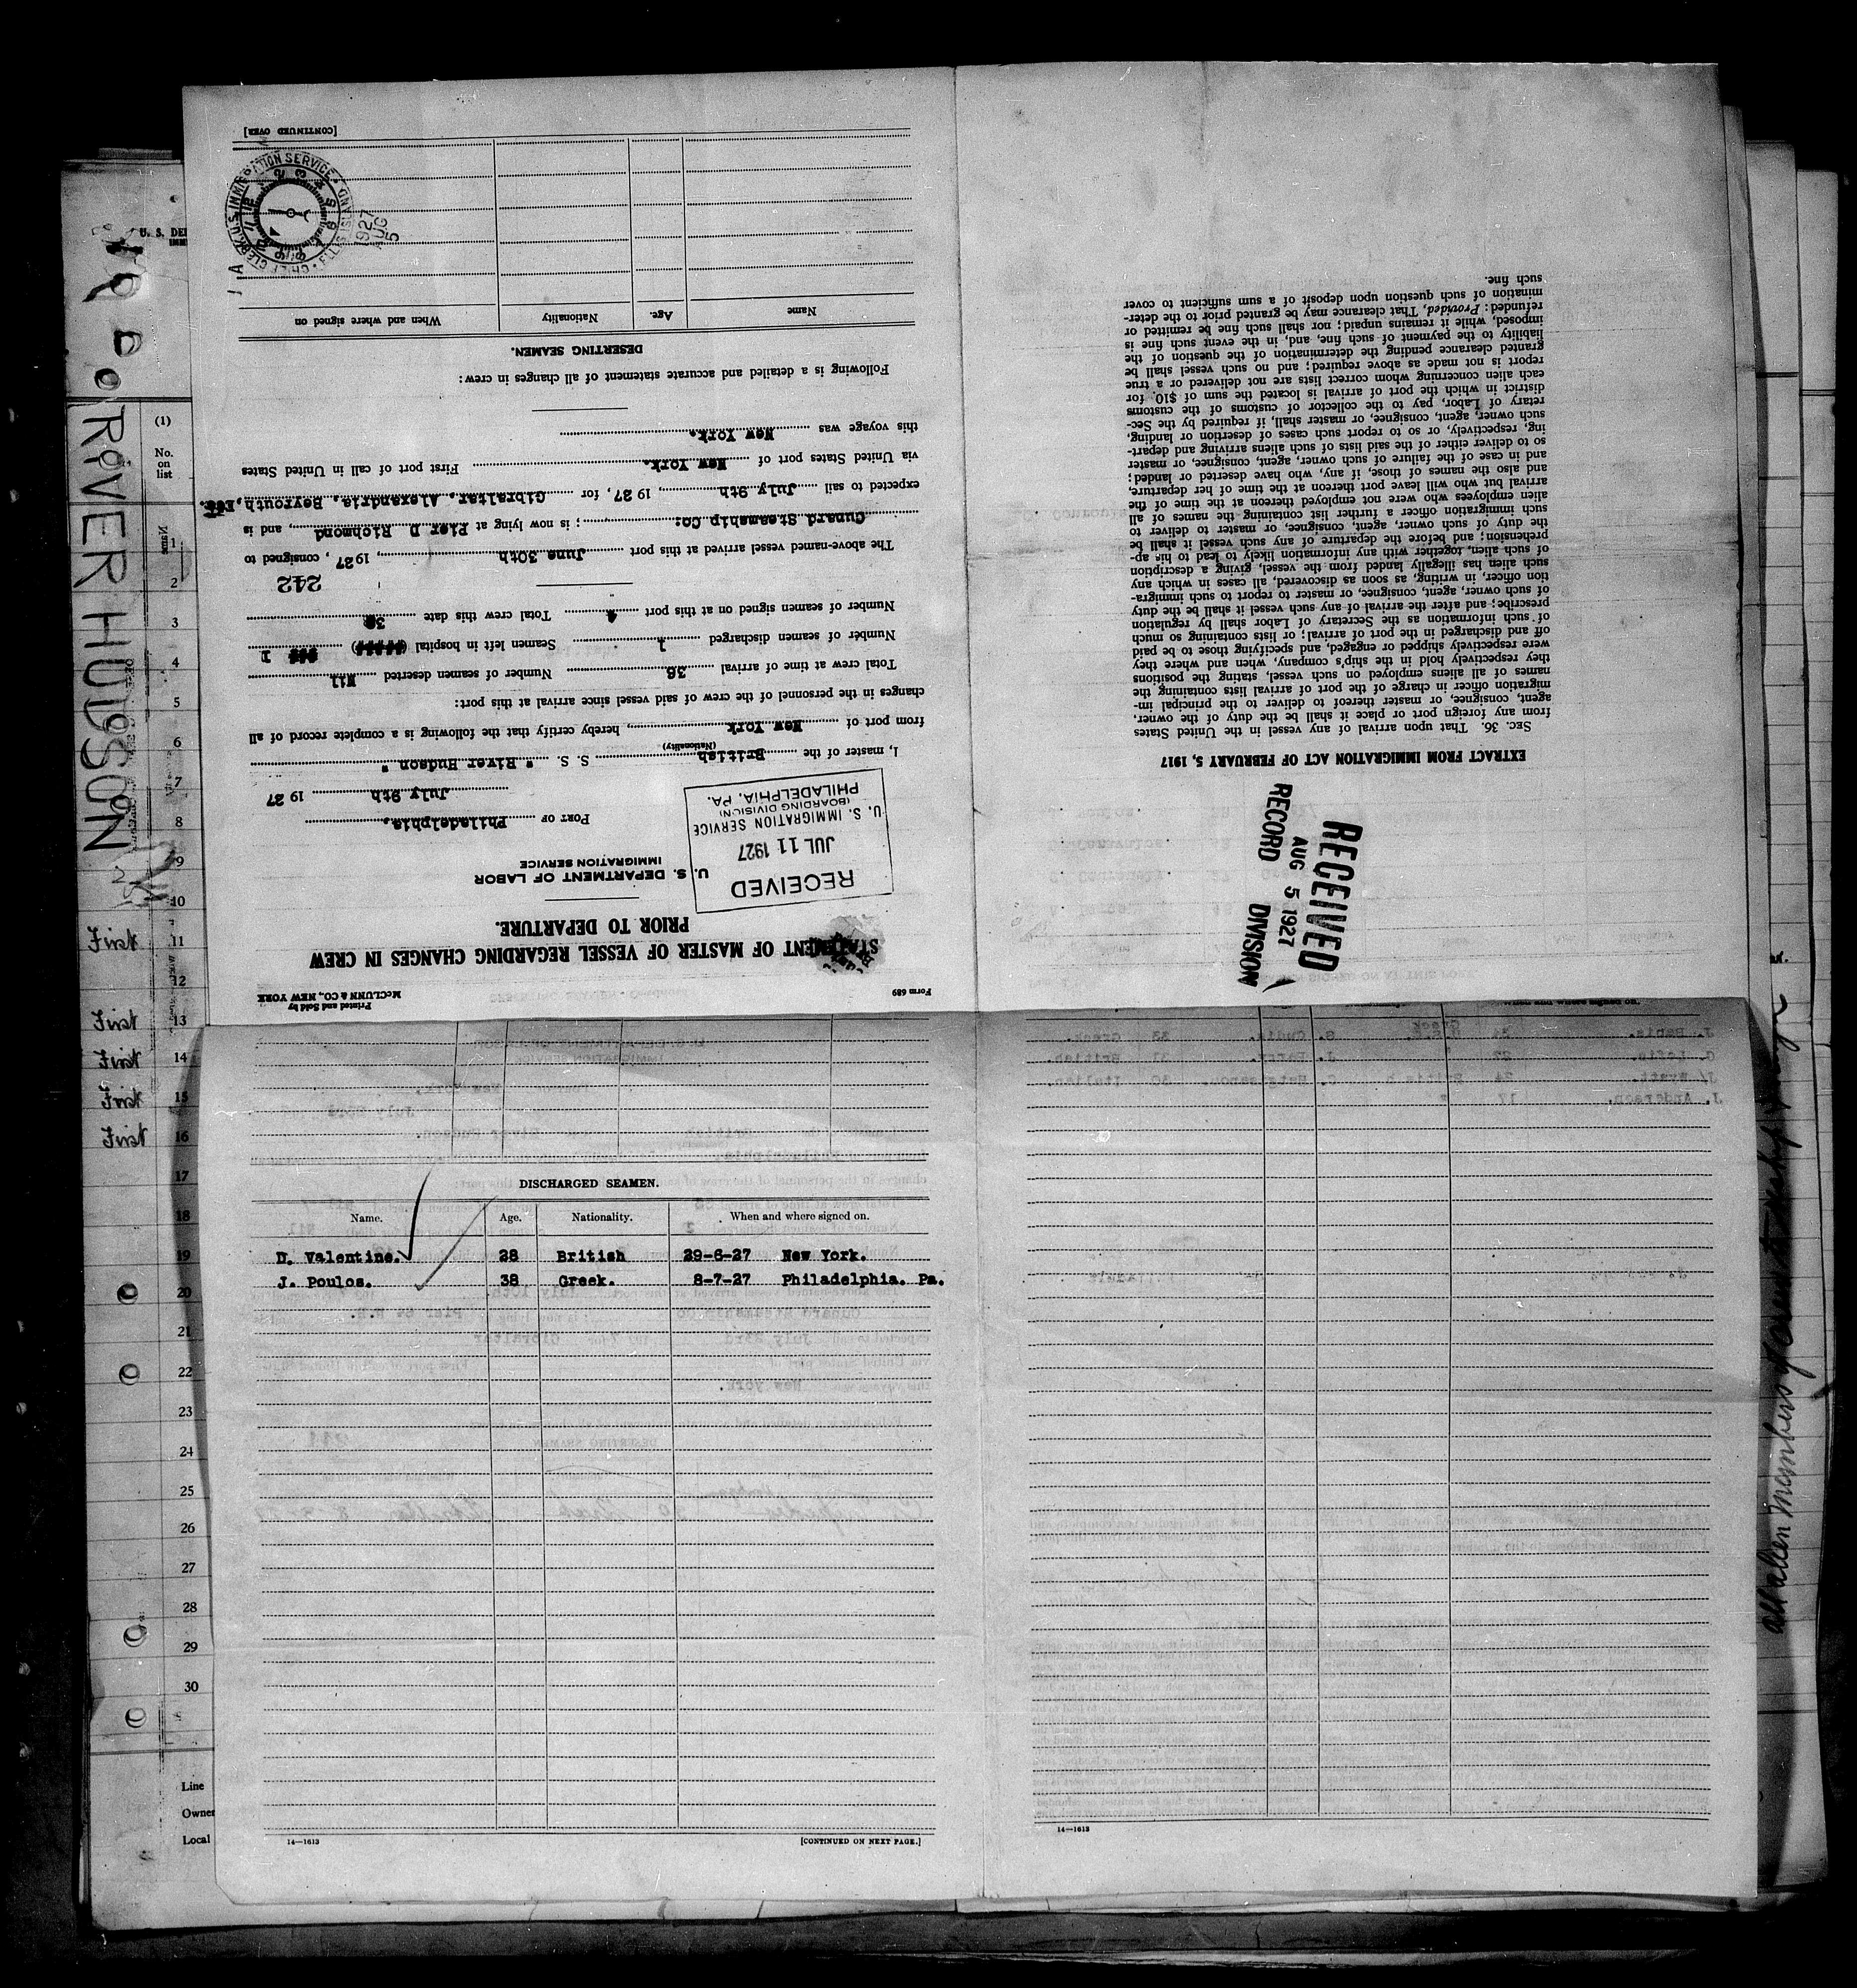 RIVER HUDSON
U. S. DE
(1)
No.
on
list
1
2
3
4
5
6
7
8
9
10
First 11
12
First 13
First 14
First 15
First 16
17
18
19
20
21
22
23
24
25
26
27
28
29
30
Line
Owner
Local
Form 689
Printed and Sold by
McCLUNN & CO., NEW YORK
STATEMENT OF MASTER OF VESSEL REGARDING CHANGES IN CREW
PRIOR TO DEPARTURE.
U. S. DEPARTMENT OF LABOR
IMMIGRATION SERVICE
RECEIVED
JUL 11 1927
U. S. IMMIGRATION SERVICE
(BOARDING DIVISION)
PHILADELPHIA, PA.
PORT OF Philadelphia,
July 9th 1927
I, master of the British S. S. " River Hudson "
(Nationality)
from port of New York, hereby certify that the following is a complete record of all
changes in the personnel of the crew of said vessel since arrival at this port:
Total crew at time of arrival 36 Number of seamen deserted Nil
Number of seamen discharged 1 Seamen left in hospital 1
Number of seamen signed on at this port Total crew this date
242
The above-named vessel arrived at this port June 30th, 1927, consigned to
Cunard Steamship Co: ; is now lying at Pier D Richmond, and is
expected to sail July 9th, 1927, for Gibraltar, Alexandria, Beyrouth,
via United States port of New York. First port of call in United States
this voyage was New York.
Following is a detailed and accurate statement of all changes in crew:
DESERTING SEAMEN.
Name Age. Nationality When and where signed on
CHIEF CLERK U.S. IMMIGRATION SERVICE ELLIS ISLAND
1927
AUG
5
[CONTINUED OVER]
RECEIVED
AUG 5 1927
RECORD DIVISION
EXTRACT FROM IMMIGRATION ACT OF FEBRUARY 5, 1917
Sec. 36. That upon arrival of any vessel in the United States
from any foreign port or place it shall be the duty of the owner,
agent, consignee, or master thereof to deliver to the principal im-
migration officer in charge of the port of arrival lists containing the
names of all aliens employed on such vessel, stating the positions
they respectively hold in the ship's company, when and where they
were respectively shipped or engaged, and specifying those to be paid
off and discharged in the port of arrival; or lists containing so much
of such information as the Secretary of Labor shall by regulation
prescribe; and after the arrival of any such vessel it shall be the duty
of such owner, agent, consignee, or master to report to such immigra-
tion officer, in writing, as soon as discovered, all cases in which any
such alien has illegally landed from the vessel, giving a description
of such alien, together with any information likely to lead to his ap-
prehension; and before the departure of any such vessel it shall be
the duty of such owner, agent, consignee, or master to deliver to
such immigration officer a further list containing the names of all
alien employees who were not employed thereon at the time of the
arrival but who will leave port thereon at the time of her departure,
and also the names of those, if any, who have deserted or landed;
and in case of the failure of such owner, agent, consignee, or master
so to deliver either of the said lists of such aliens arriving and depart-
ing, respectively, or so to report such cases of desertion or landing,
such owner, agent, consignee, or master shall, if required by the Sec-
retary of Labor, pay to the collector of customs of the customs
district in which the port of arrival is located the sum of $10 for
each alien concerning whom correct lists are not delivered or a true
report is not made as above required; and no such vessel shall be
granted clearance pending the determination of the question of the
liability to the payment of such fine, and, in the event such fine is
imposed, while it remains unpaid; nor shall such fine be remitted or
refunded: Provided, That clearance may be granted prior to the deter-
mination of such question upon deposit of a sum sufficient to cover
such fine.
DISCHARGED SEAMEN.
Name. Age. Nationality. When and where signed on.
D. Valentine. 28 British 29-6-27 New York.
J. Poulos. 38 Greek. 8-7-27 Philadelphia. Pa.
14—1613
[CONTINUED ON NEXT PAGE.]
14—1613